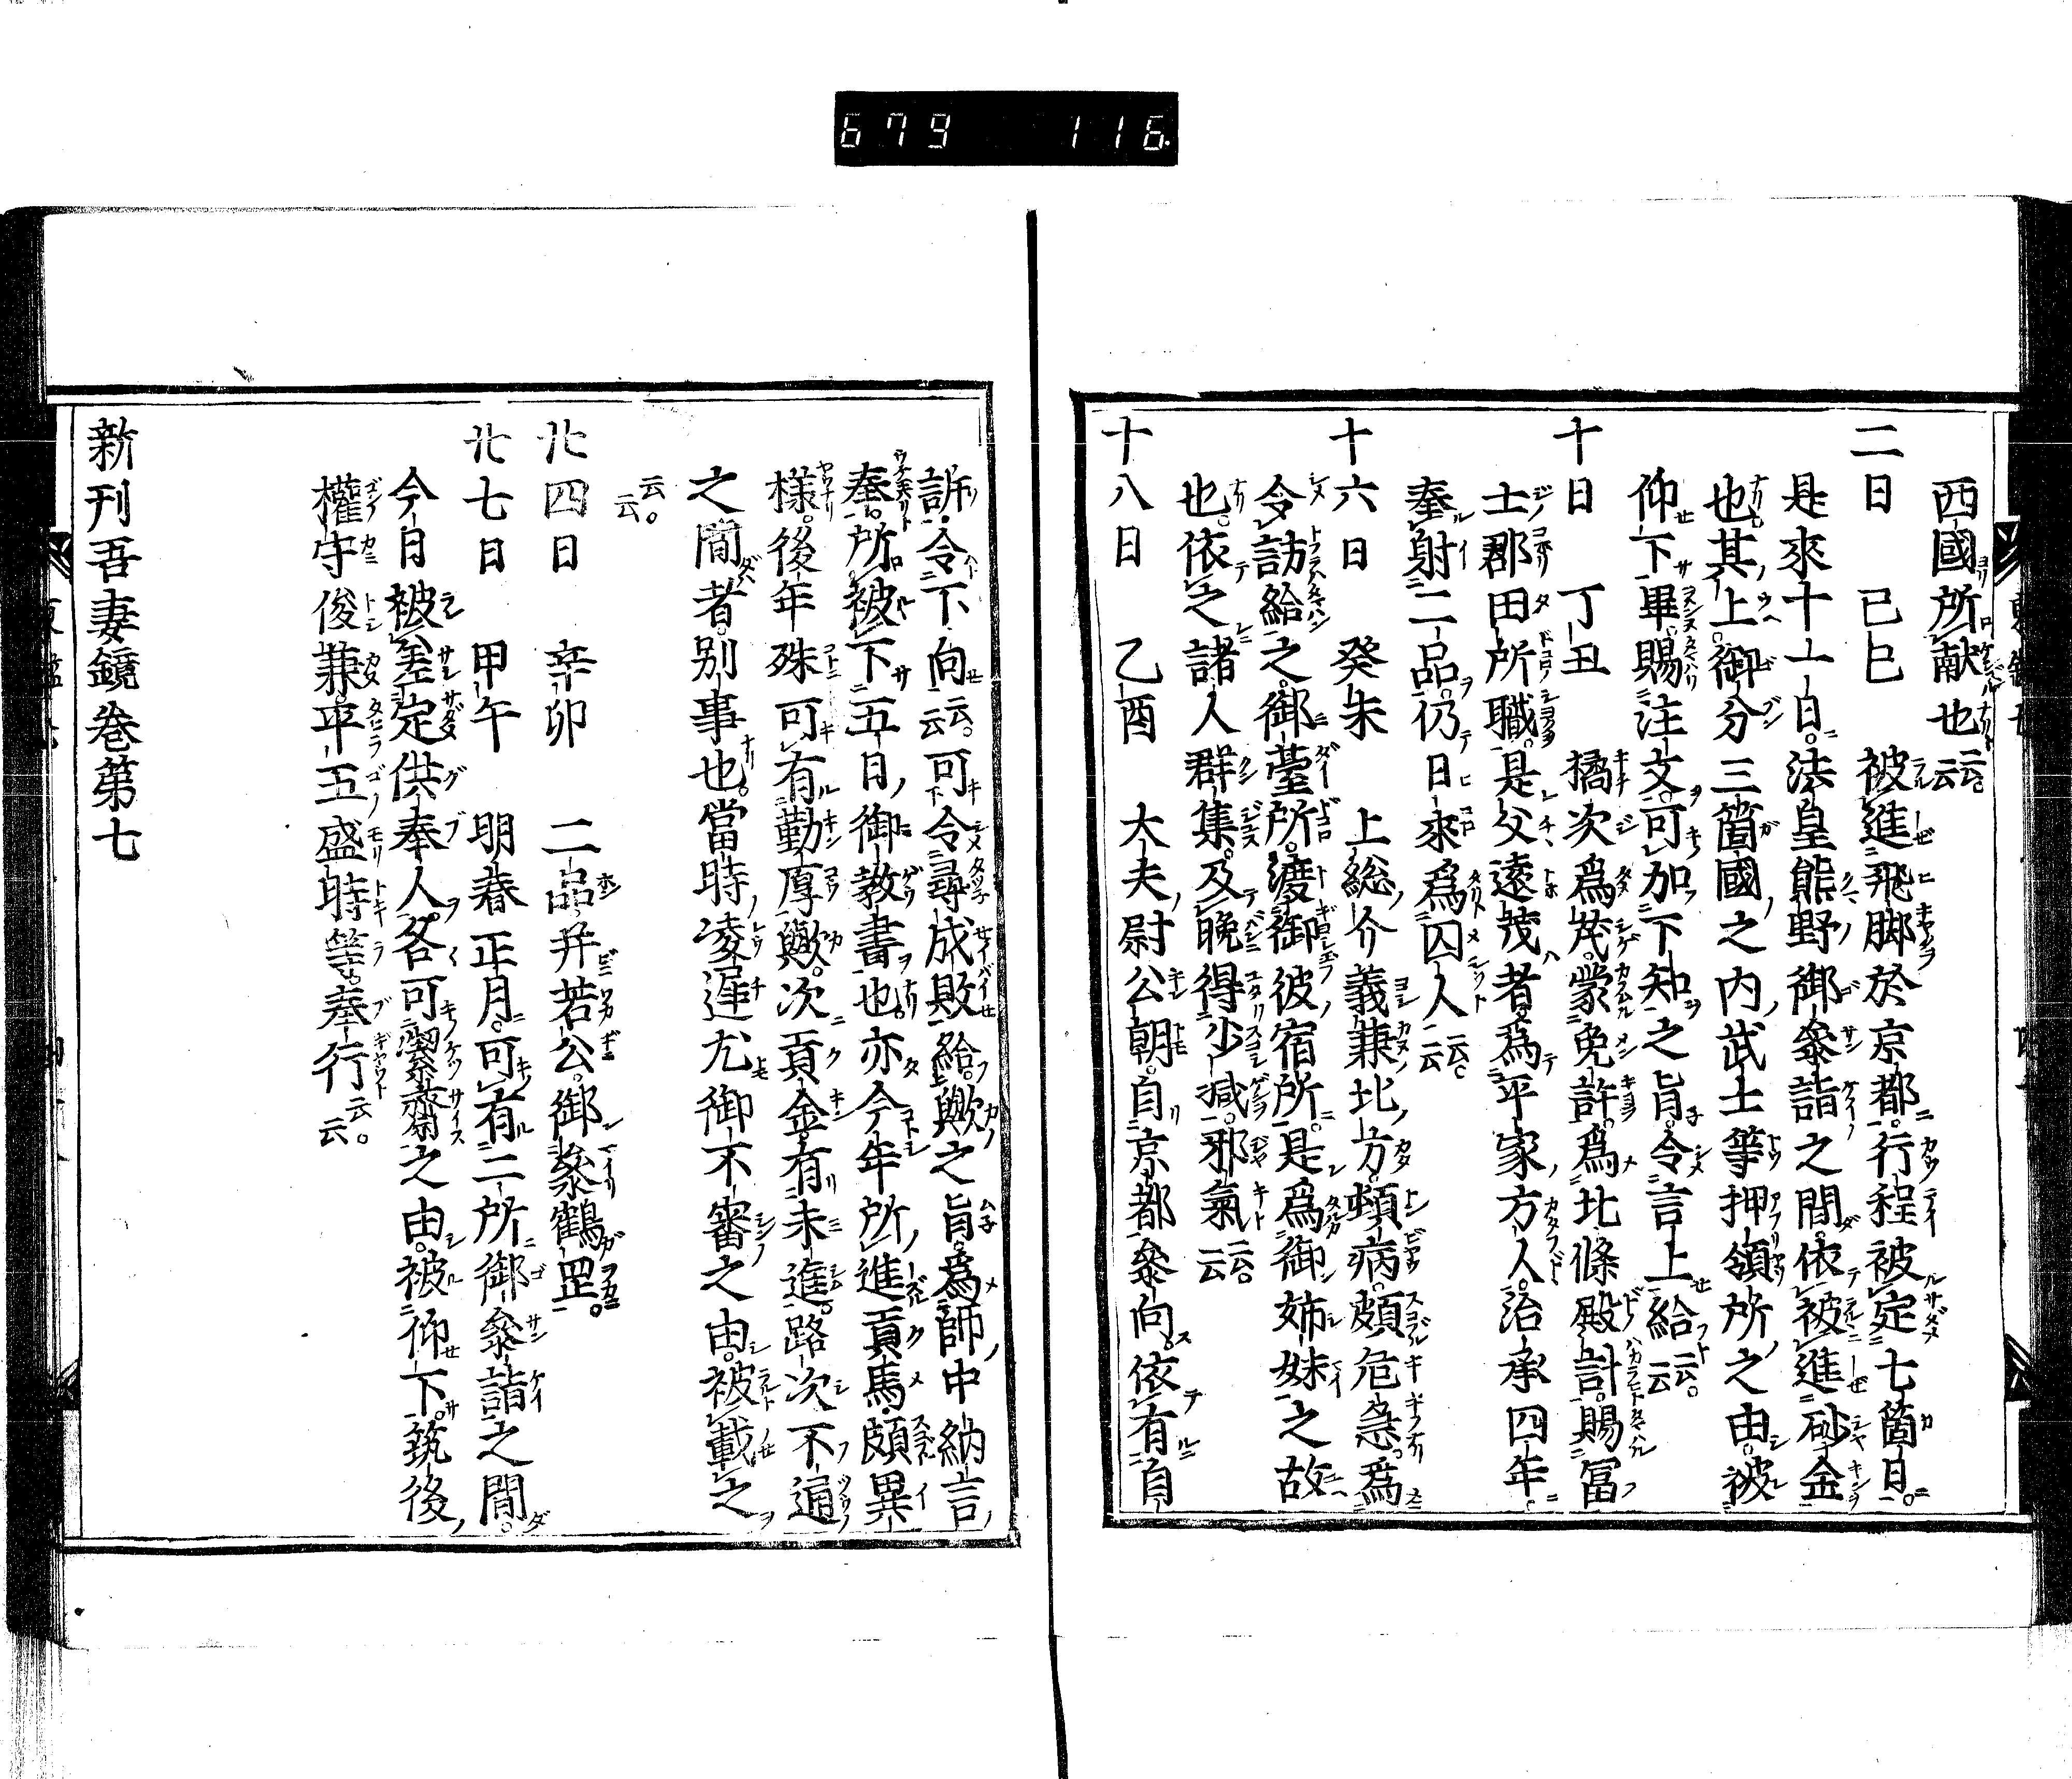 679 116.
西國所献也云云
二日 己巳 被進飛脚於京都行程被定七箇日
是來十一日法皇熊野御參詣之間依被進砂金
也其上御分三箇國之内武士等押領所之由被
仰下畢賜注文可加下知之旨令言上給云云
十日 丁丑 橘次爲茂蒙免許爲北條殿計賜冨
士郡田所職是父遠茂者爲平家方人治承四年
奉射二品仍日來爲囚人云云
十六日 癸未 上総介義兼北方頓病頗危急爲
令訪給之御臺所渡御彼宿所是爲御姉妹之故
也依之諸人群集及晩得少減邪氣云云
十八日 乙酉 大夫尉公朝自京都參向依有自
訴令下向云云可令尋成敗給歟之旨爲師中納言
奉所被下五日御教書也亦今年所進貢馬頗異
樣後年殊可有勤厚歟次貢金有未進路次不通
之間者別事也當時凌遅尤御不審之由被載之
云云
廿四日 辛卯 二品并若公御參鶴罡
廿七日 甲午 明春正月可有二所御參詣之間
今日被差定供奉人各可潔齋之由被仰下筑後
權守俊兼平五盛時等奉行云云
新刊吾妻鏡巻第七